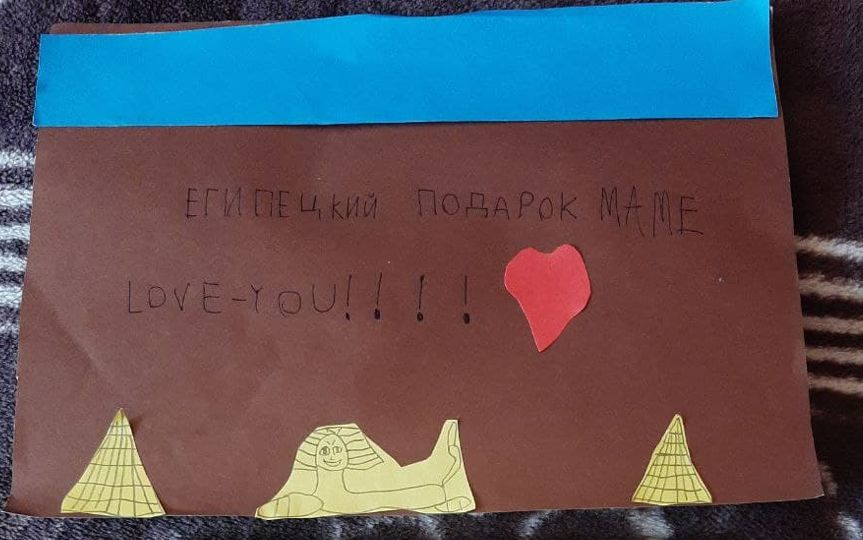 ЕГИПЕЦКИЙ ПОДАРОК МАМЕ
LOVE-YOU!!!!